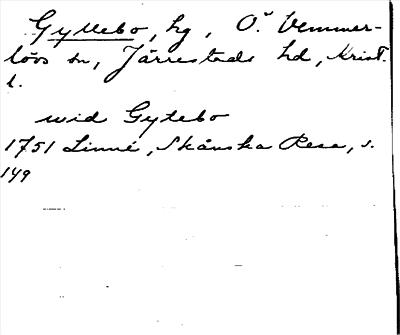 Gyllebo, hg, Ö. Vemmer-
lövs sn, Järrestads hd, Krist.
l.
wid Gytebo
1751 Linné, Skånska Resa, s.
149